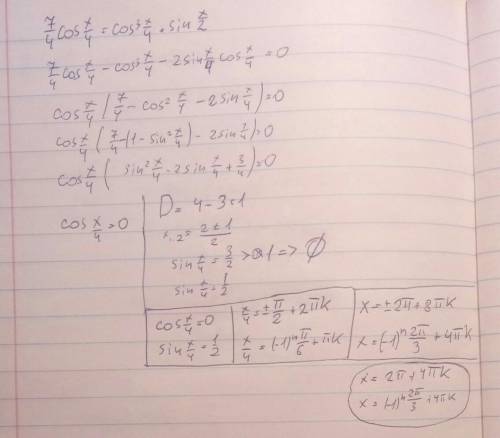 7/4 cos x/4 = cos³ x/4 + sin x/2
7/4 cos x/4 - cos³ x/4 - 2sin x/4 cos x/4 = 0
cos x/4 (7/4 - cos² x/4 - 2sin x/4) = 0
cos x/4 (7/4 - (1 - sin² x/4) - 2sin x/4) = 0
cos x/4 (sin² x/4 - 2sin x/4 + 3/4) = 0
cos x/4 = 0
D = 4 - 3 = 1
x₁,₂ = (2 ± 1)/2
sin x/4 = 3/2 > 1 => ∅
sin x/4 = 1/2
cos x/4 = 0
sin x/4 = 1/2
x/4 = ± π/2 + 2πk
x/4 = (-1)ⁿ π/6 + πk
x = ±2π + 8πk
x = (-1)ⁿ 2π/3 + 4πk
x = 2π + 4πk
x = (-1)ⁿ 2π/3 + 4πk